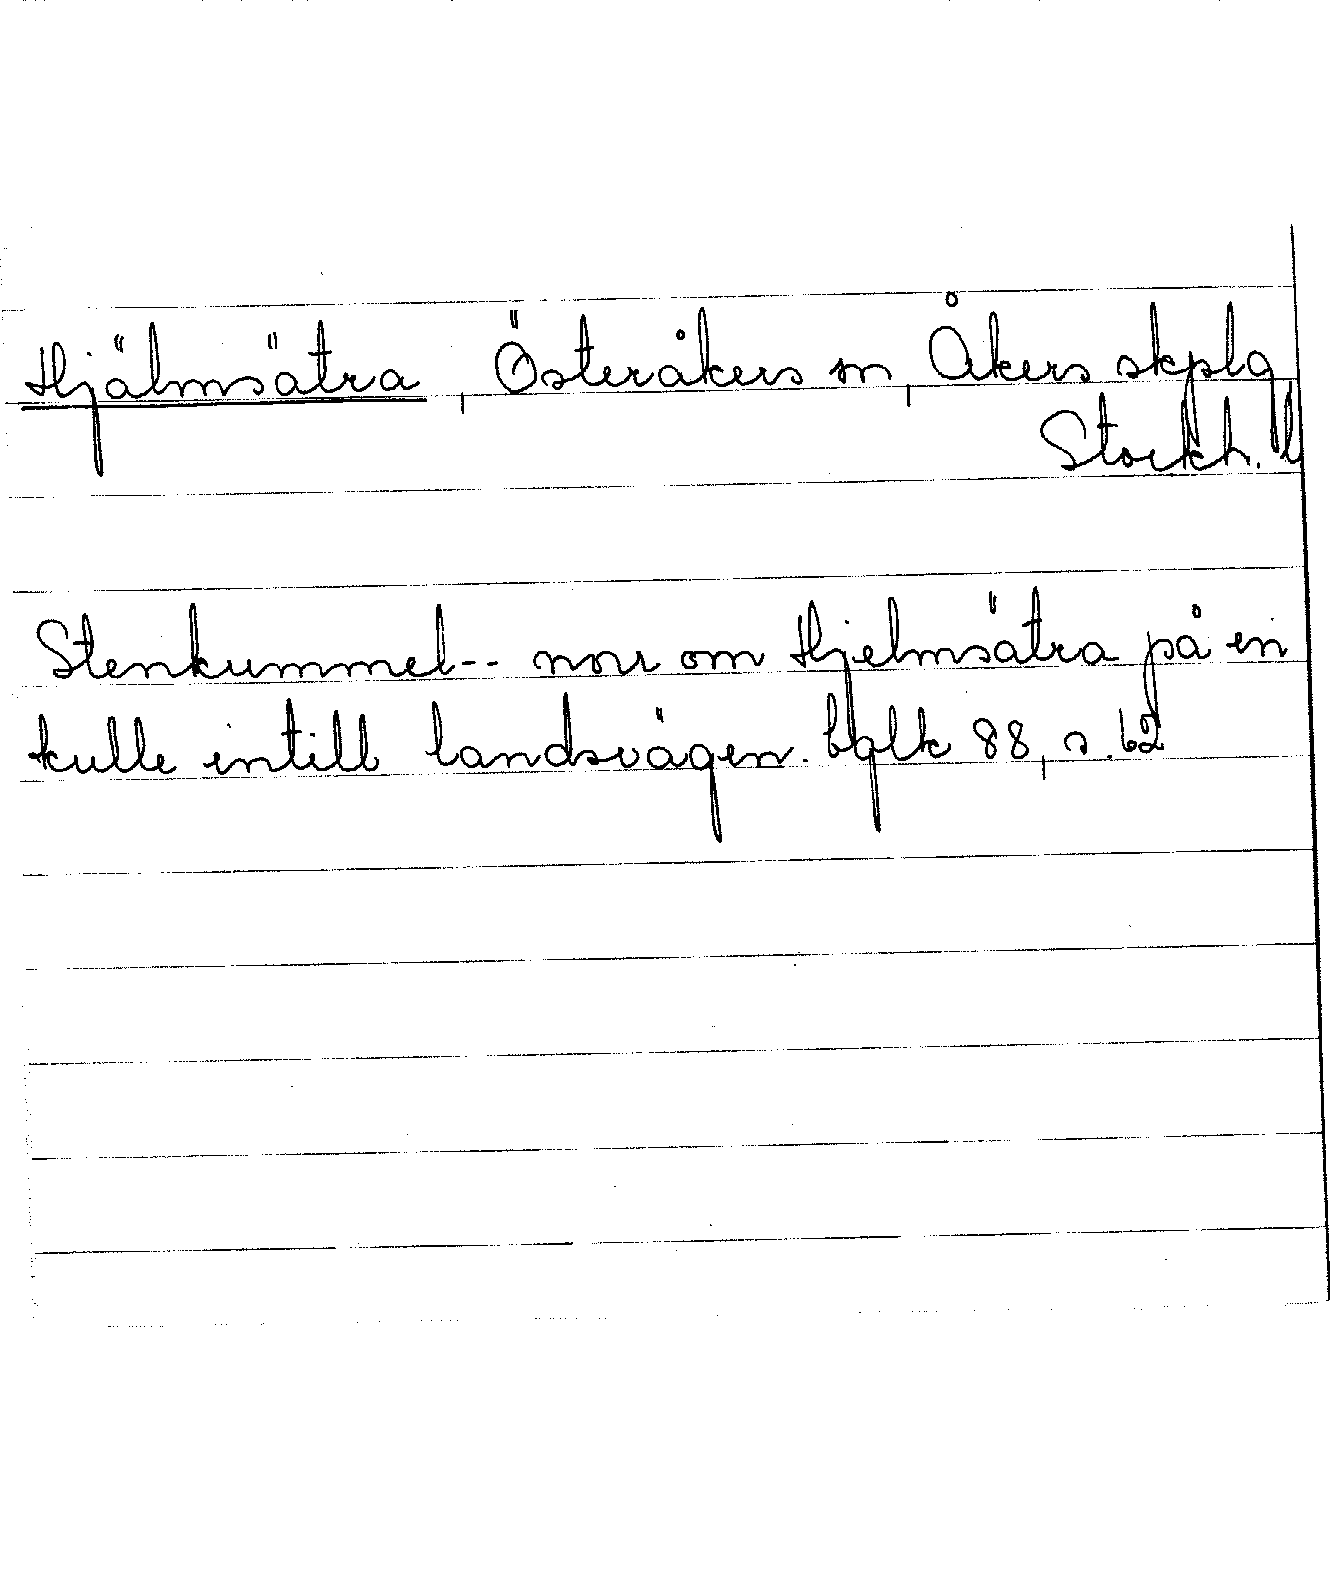 Hjälmsätra, Österåkers sn, Åkers skplg
Stockh. l
Stenkummel -- norr om Hjelmsätra på en
kulle intill landsvägen. bglk 88, s. 62